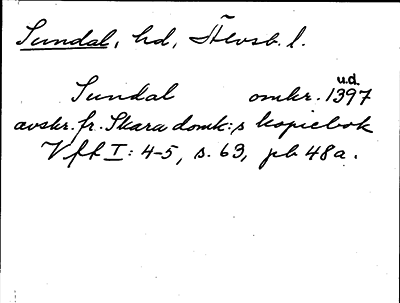 Sundal, hd, Älvsb. l.
Sundal omkr. 1397 u.d.
avskr. fr. Skara domk:s kopiebok
Vft I: 4-5, s. 63, pb 48a.